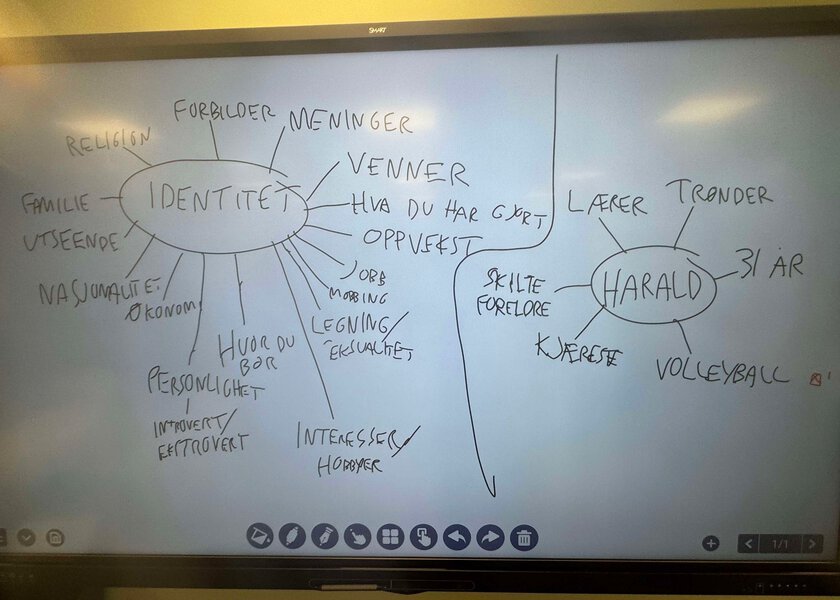 SMART
RELIGION
FORBILDER
MENINGER
FAMILIE
IDENTITET
VENNER
HVA DU HAR GJORT
UTSEENDE
OPPVEKST
NASJONALITET
ØKONOMI
JOBB
MOBBING
LEGNING/
SEKSUALITET
HVOR DU
BOR
PERSONLIGHET
INTROVERT/
EKSTROVERT
INTERESSER/
HOBBYER
LÆRER
TRØNDER
31 ÅR
HARALD
SKILTE
FORELDRE
KJÆRESTE
VOLLEYBALL
1/1